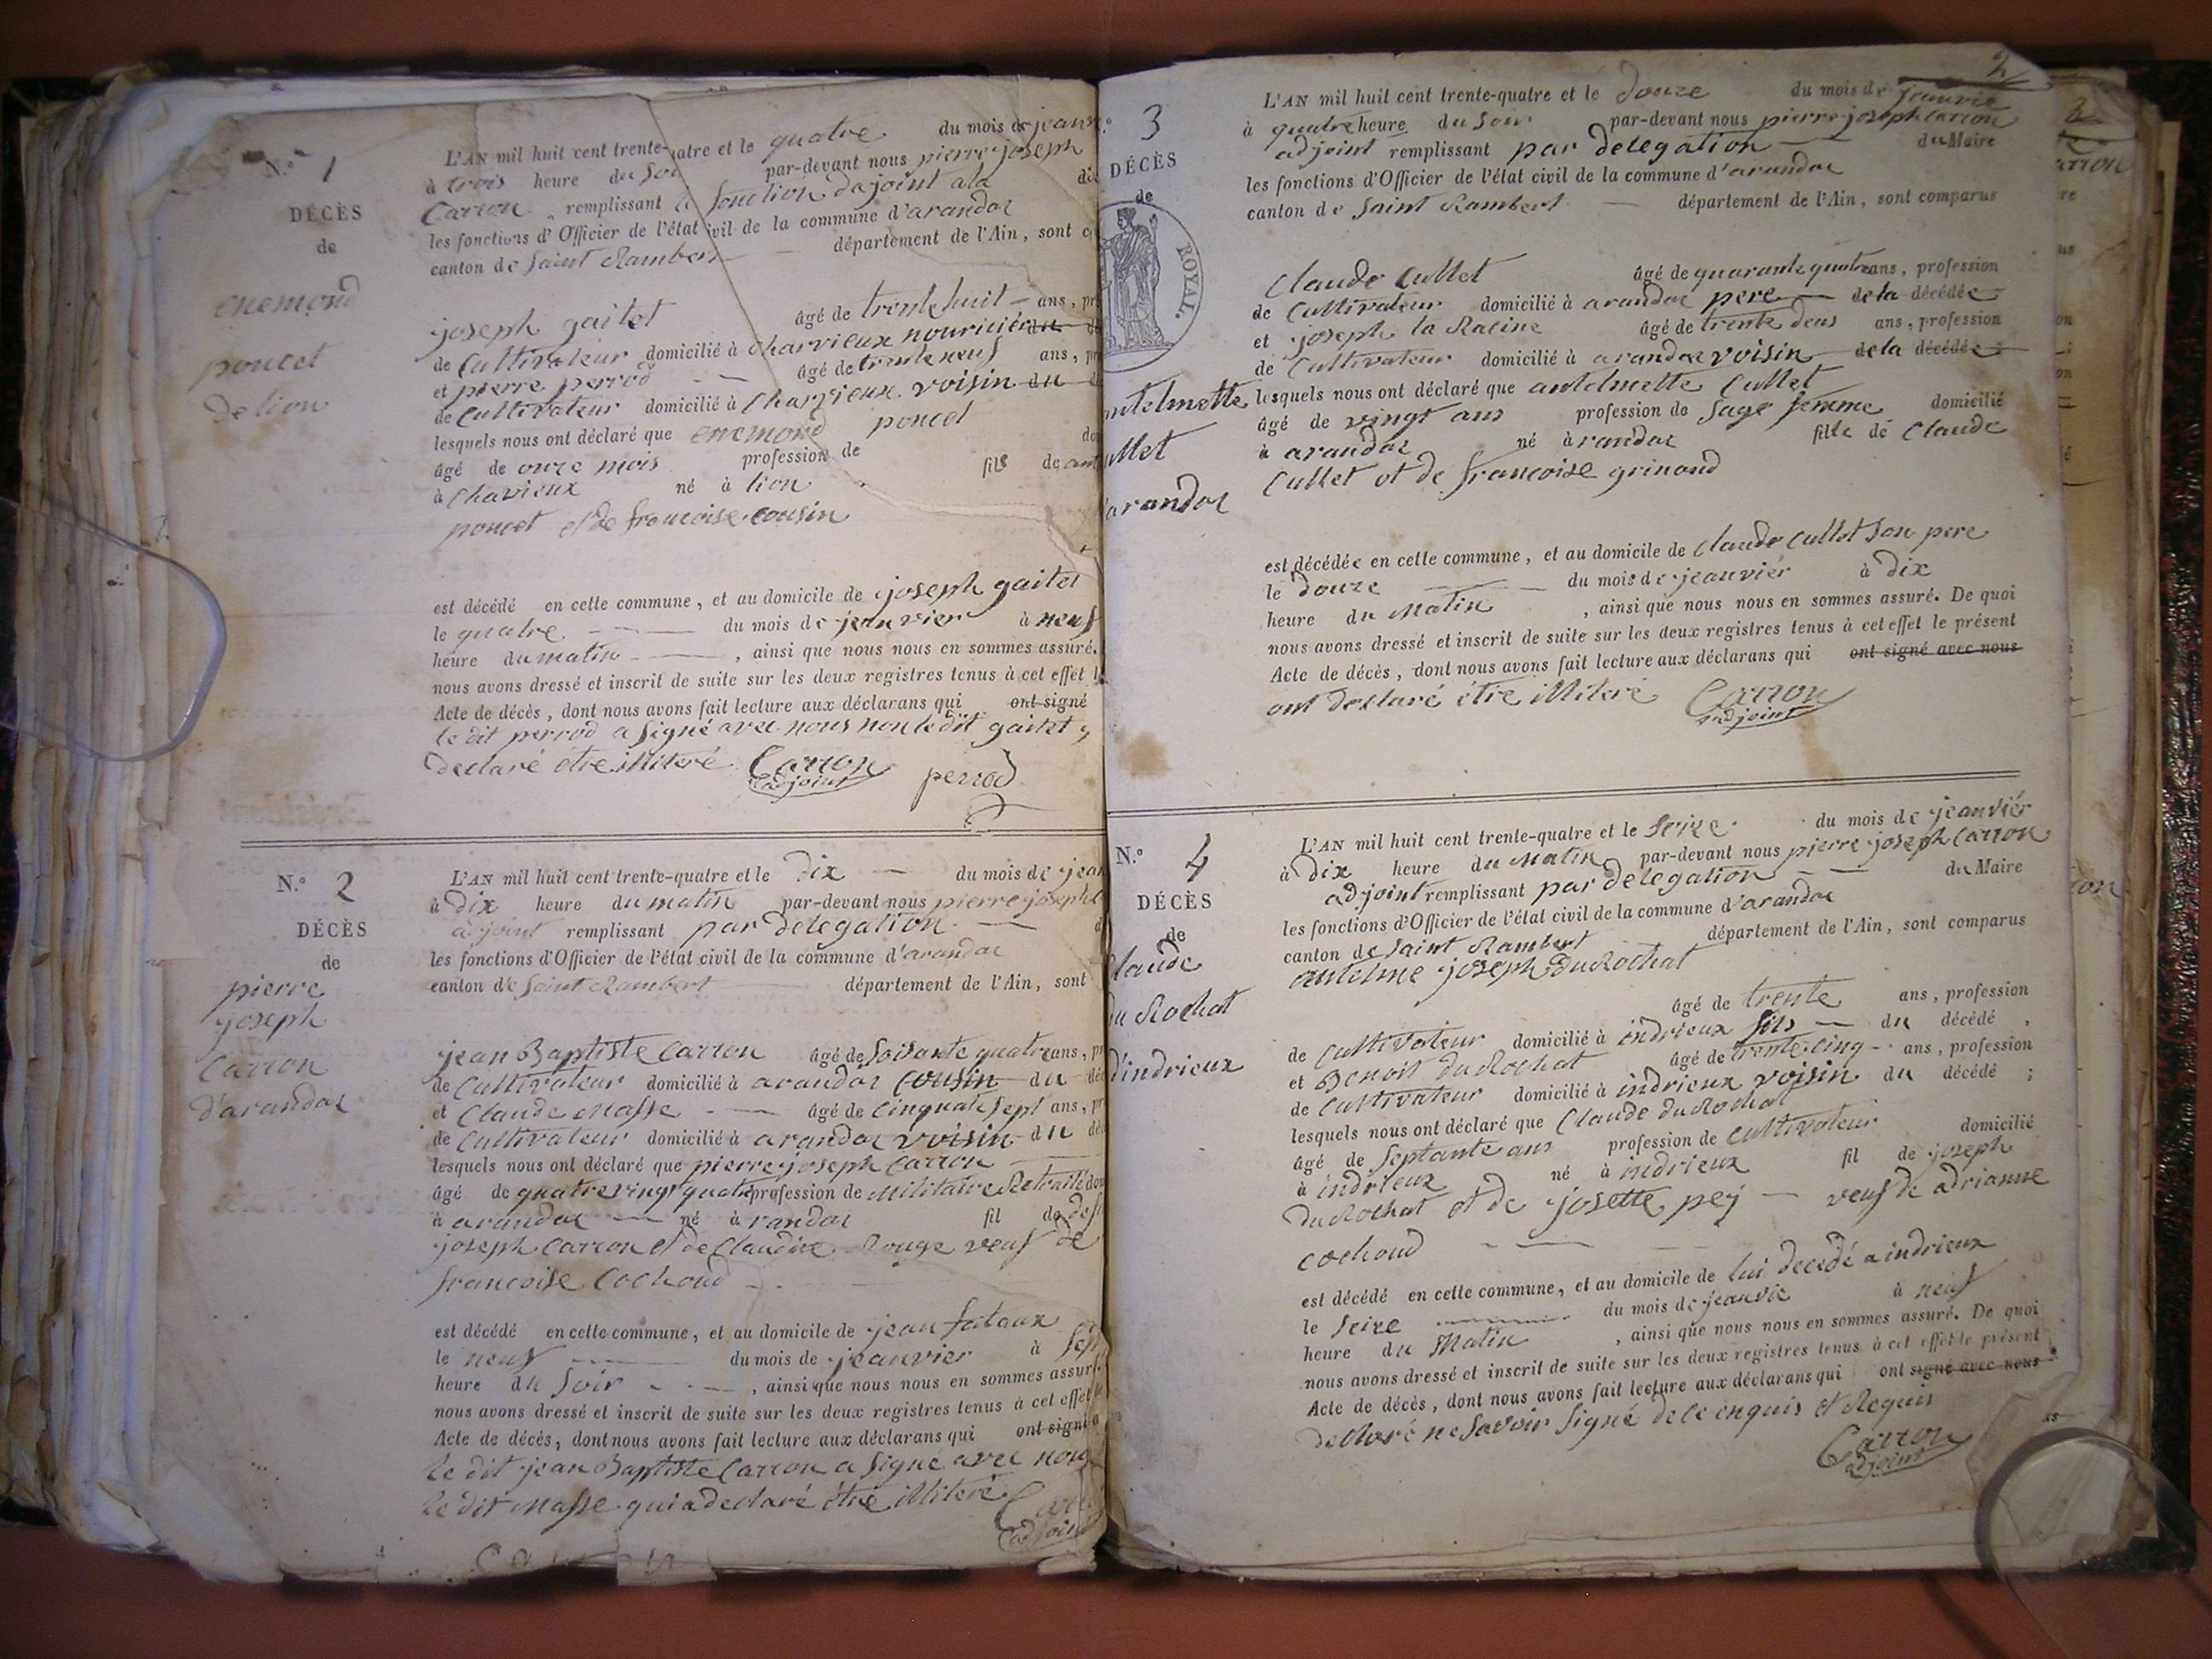 N.° 1
DÉCÈS
de
enemond
poncet
de lion
L'AN mil huit cent trente-quatre et le quatre du mois de jeanv
à trois heure du soi par-devant nous pierre joseph
Carron remplissant la fonction dajoint ala
les fonctions d'Officier de l'état civil de la commune d'arandas
canton de Saint Rambert département de l'Ain, sont c
joseph gaitet âgé de trente huit ans, pr
de Cultivateur domicilié à Charvieux nouricier du
et pierre perrod âgé de trente neuf ans, pr
de Cultivateur domicilié à Charvieux voisin du
lesquels nous ont déclaré que enemond poncet
âgé de onze mois profession de do
à Chavieux né à lion fils de ant
poncet et de francoise cousin
est décédé en cette commune, et au domicile de joseph gaitet
le quatre du mois de jeanvier à neuf
heure du matin, ainsi que nous nous en sommes assuré.
nous avons dressé et inscrit de suite sur les deux registres tenus à cet effet l
Acte de décès, dont nous avons fait lecture aux déclarans qui ont signé
le dit perrod a signé avec nous non le dit gaitet q
declaré etre illiteré Carron perrod
adjoint
N.° 2
DÉCÈS
de
pierre
joseph
Carron
d'arandas
L'AN mil huit cent trente-quatre et le dix du mois de jean
à dix heure du matin par-devant nous pierre joseph C
adjoint remplissant par delegation d
les fonctions d'Officier de l'état civil de la commune d'arandas
canton de Saint Rambert département de l'Ain, sont
jean Baptiste Carron âgé de Soisante quatre ans, pr
de Cultivateur domicilié à arandas cousin du déc
et Claude Masse âgé de Cinquate sept ans, pr
de Cultivateur domicilié à arandas voisin du déc
lesquels nous ont déclaré que pierre joseph Carron
âgé de quatre vingt quatre profession de Militaire Retraité dom
à arandas né à randas fil de def
joseph Carron et de Claudine Rouge veuf de
francoise Cochoud
est décédé en cette commune, et au domicile de jean
le neuf du mois de jeanvier à sep
heure du Soir, ainsi que nous nous en sommes assuré
nous avons dressé et inscrit de suite sur les deux registres tenus à cet effet
Acte de décès, dont nous avons fait lecture aux déclarans qui ont signé a
le dit jean Baptiste Carron a signé avec nous
le dit Masse qui a declaré être illiteré Car
adjoint
2
N.° 3
DÉCÈS
de
ROYAL.
antelmette
ullet
arandas
L'AN mil huit cent trente-quatre et le douze du mois de jeanvie
à quatre heure du soir par-devant nous pierre joseph Carron
adjoint remplissant par delegation du Maire
les fonctions d'Officier de l'état civil de la commune d'arandas
canton de Saint Rambert département de l'Ain, sont comparus
Claude Cullet âgé de quarante quatre ans, profession
de Cultivateur domicilié à arandas pere de la décédée
et joseph la Racine âgé de trente deus ans, profession
de Cultivateur domicilié à arandas voisin de la décédée ;
lesquels nous ont déclaré que antelmette Cullet
âgé de vingt ans profession de Sage femme domicilié
à arandas né à randas fille de Claude
Cullet et de francoise grinond
est décédée en cette commune, et au domicile de Claude Cullet Son pere
le douze du mois de jeanvier à dix
heure du Matin, ainsi que nous nous en sommes assuré. De quoi
nous avons dressé et inscrit de suite sur les deux registres tenus à cet effet le présent
Acte de décès, dont nous avons fait lecture aux déclarans qui ont signé avec nous
ont declaré étre illiteré Carron
adjoint
N.° 4
DÉCÈS
de
Claude
du Rochat
d'indrieux
L'AN mil huit cent trente-quatre et le Seize du mois de jeanviér
à dix heure du Matin par-devant nous pierre joseph Carron
adjoint remplissant par delegation du Maire
les fonctions d'Officier de l'état civil de la commune d'arandas
canton de Saint Rambert département de l'Ain, sont comparus
antelme joseph Du Rochat
âgé de trente ans, profession
de Cultivateur domicilié à indrieux fils du décédé,
et Benoit du Rochat âgé de trente cinq ans, profession
de Cultivateur domicilié à indrieux voisin du décédé ;
lesquels nous ont déclaré que Claude du Rochat
âgé de Septante ans profession de Cultivateur domicilié
à indrieux né à indrieux fil de joseph
Du Rochat et de josette pey veuf de adrianne
cochoud
est décédé en cette commune, et au domicile de lui decedé a indrieux
le Seize du mois de jeanvie à neuf
heure du Matin, ainsi que nous nous en sommes assuré. De quoi
nous avons dressé et inscrit de suite sur les deux registres tenus à cet effet le présent
Acte de décès, dont nous avons fait lecture aux déclarans qui ont signé avec nous
declaré ne Savoir Signé de ce enquis et Requis
Carron
adjoint